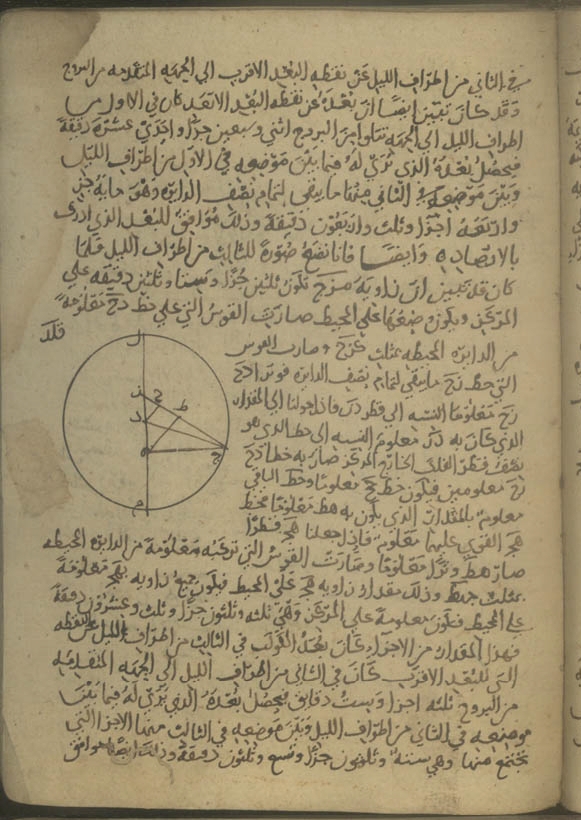 في الثاني من اطراف الليل عن نقطه البعد الاقرب الي الجهه المتقدمه من البروج
وقد كان تبين ايضا ان بعده عن نقطه البعد الابعد كان في الاول من
اطراف الليل الي الجهه من البروج اثني وسبعين جزا واحدي عشره دقيقة
فيحصل بعده الذي يُري له فيما بين موضعه في الاول من اطراف الليل
وبين موضعه في الثاني منها ما يبقي لتمام نصف الدايره وهو مايه جز
واربعه اجزا وثلث واربعون دقيقة وذلك موافق للبعد الذي ادرك
بالارصاد وايضا فانا نضع صوره للثالث من اطراف الليل فلما
كان قد تبين ان زاويه تكون ثلثين جزا وستا وثلثين دقيقه علي
المركز ويكون وضعها علي المحيط صارت القوس التي علي خط دح معلومه
من الدايره المحيطه بمثلث وصارت القوس
التي خط زح ما يبقي لتمام نصف الدايره فوتر ادح
زح معلوما النسبه الي قطر در فاذا حولنا الي المقدار
الذي كان به در معلوم النسبه الي خط الذي هو
نصف قطر الفلك الخارج المركز صار به خطا دح
زح معلومين فيكون خط معلوما وخط الباقي
معلوم بالمقدار الذي يكون به هط معلوما فخط
هج القوي عليهما معلوم فاذا جعلنا هج قطرا
صار هط وترا معلوما وصارت القوس التي توتر معلومة من الدايره المحيطه
بمثلث جهط وذلك مقدار زاويه علي المحيط فيكون جميع زاويه معلومة
علي المحيط فتكون معلومة علي المركز وهي ثلثه وثلثون جزا وثلث وعشرون دقيقة
فهذا المقدار من الاجزاء كان بعد الكوكب في الثالث من اطراف الليل عن نقطه
البعد الاقرب كان في الثاني من اطراف الليل الي الجهه المتقدمه
من البروج ثلثه اجزا وست دقايق فيحصل بعده الذي يُري له فيما بين
موضعه في الثاني من اطراف الليل وبين موضعه في الثالث منها الاجزا التي
تجتمع منها وهي سته وثلثون جزا وتسع وثلثون دقيقة وذلك ايضا موافق
ل
ز
ح
د
ط
ه
ج
م